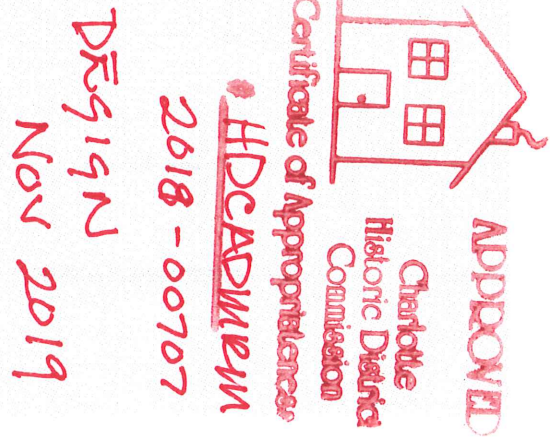 APPROVED
Charlotte
Historic District
Commission
Certificate of Appropriateness
HDCADMRM
2018-00707
DESIGN
NOV 2019